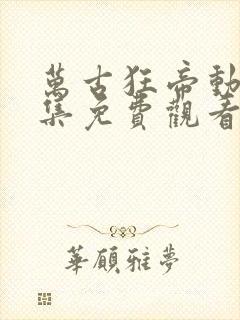 萬古狂帝動
集免費觀看
華顧雅夢